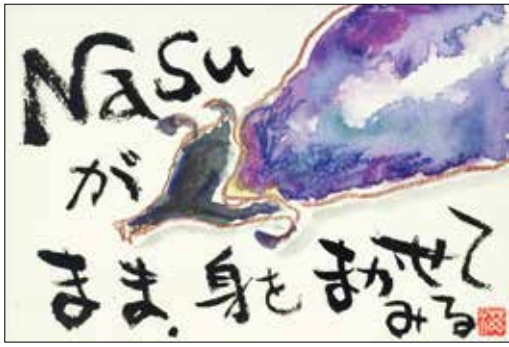 Nasu
が
まま.身をまかせて
みる